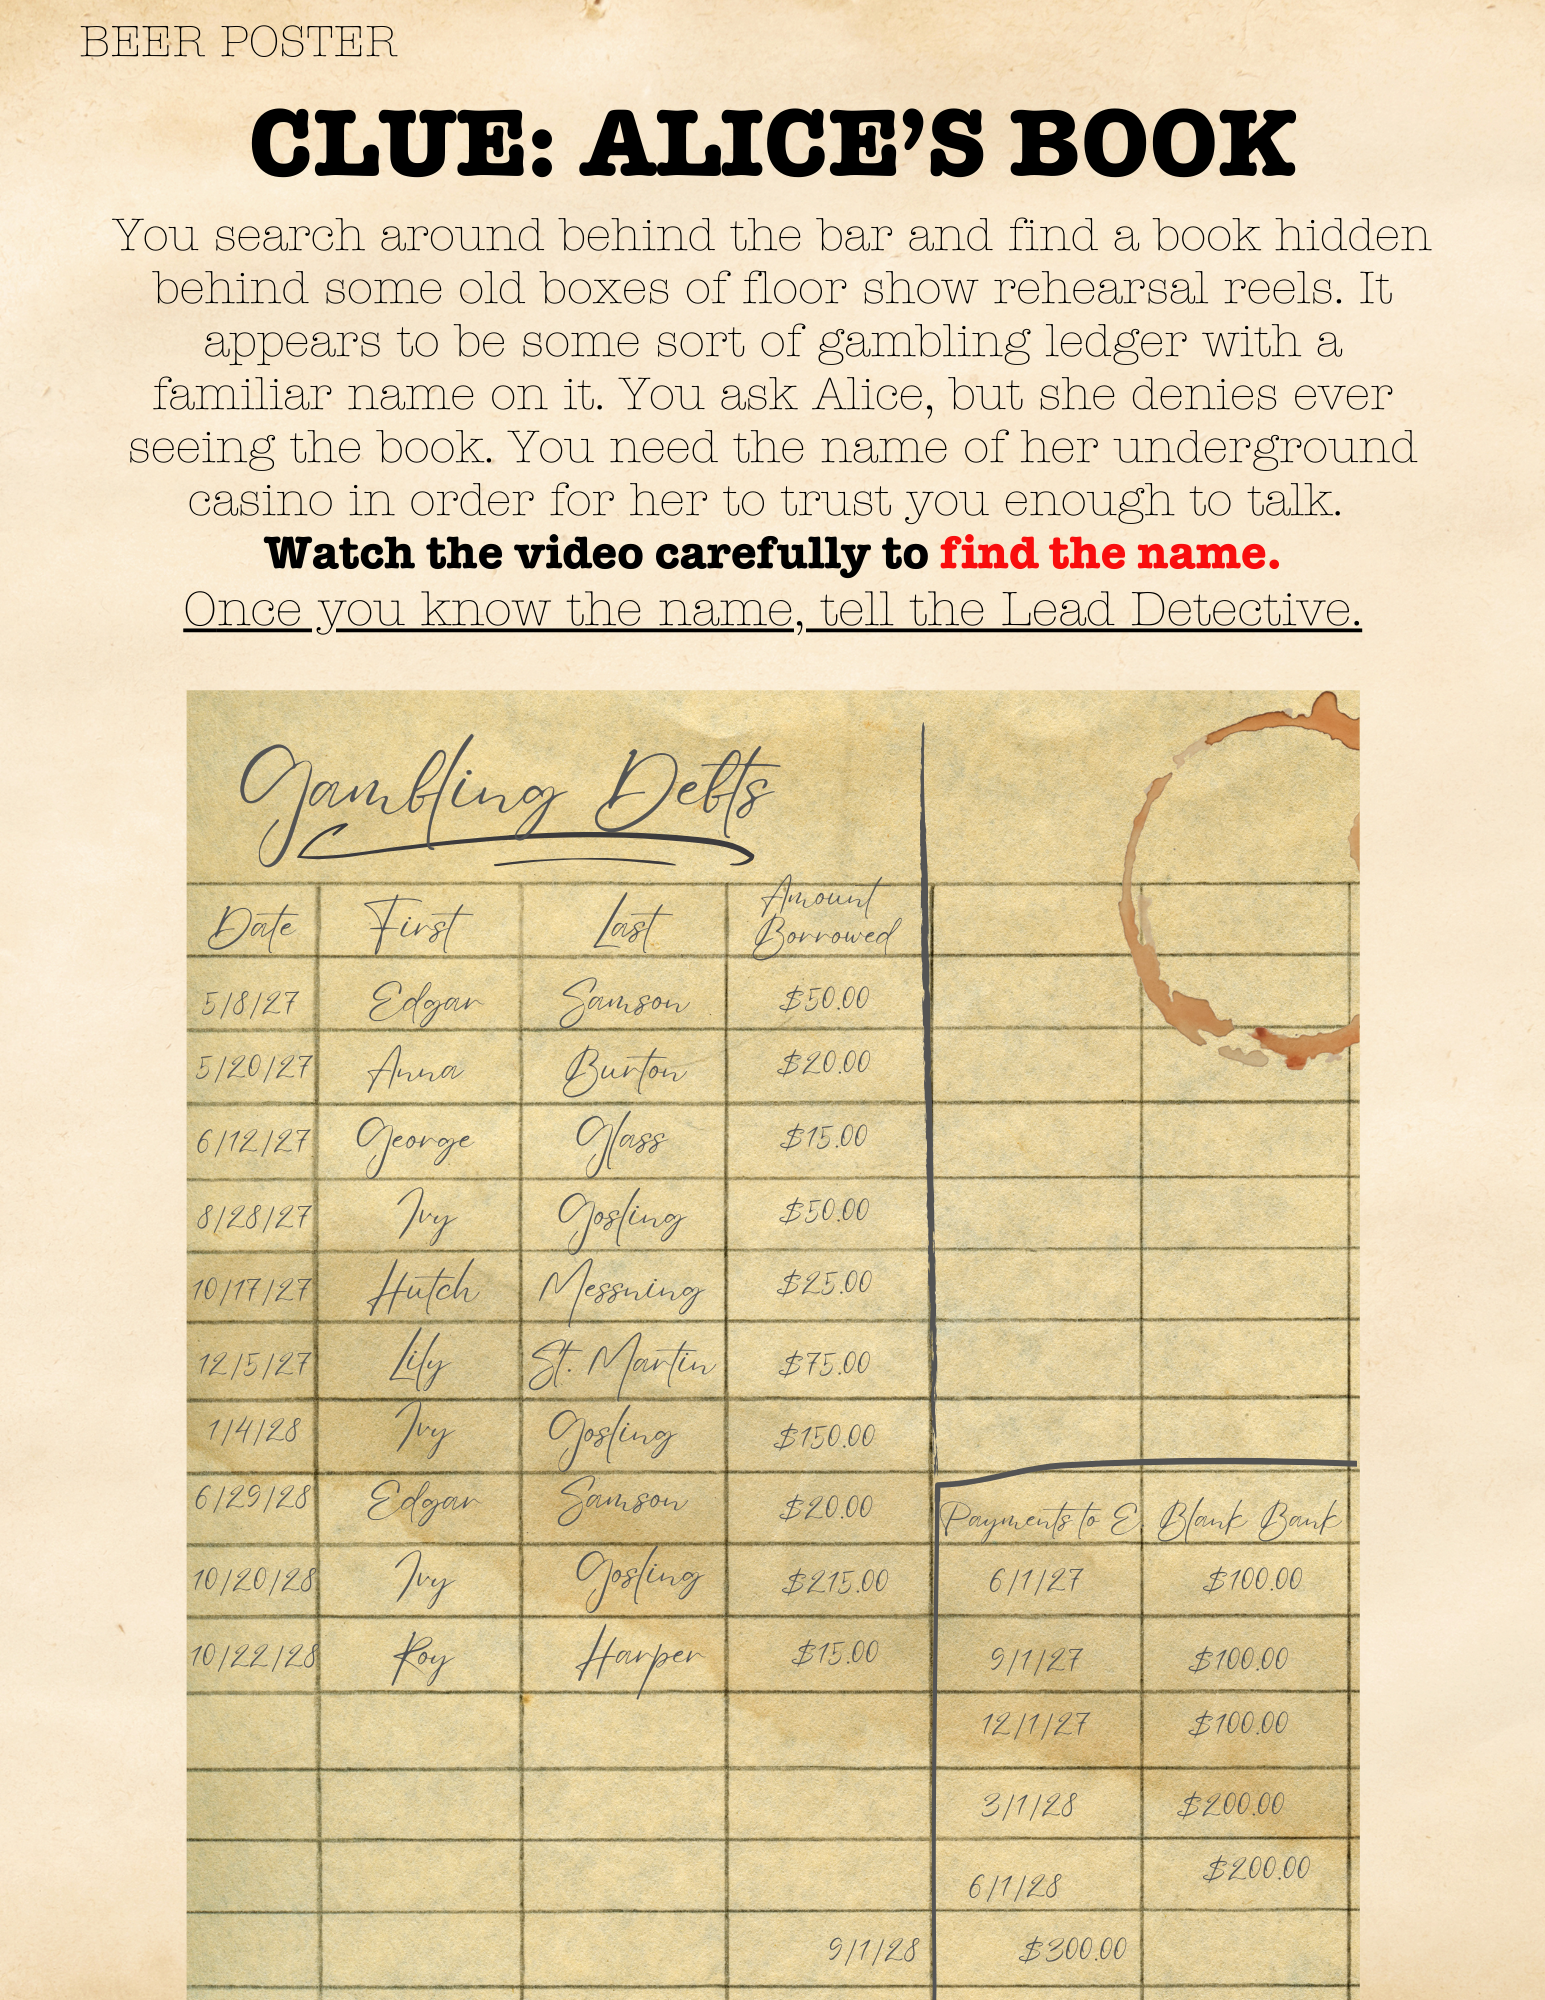 BEER POSTER
CLUE: ALICE'S BOOK
You search around behind the bar and find a book hidden
behind some old boxes of floor show rehearsal reels. It
appears to be some sort of gambling ledger with a
familiar name on it. You ask Alice, but she denies ever
seeing the book. You need the name of her underground
casino in order for her to trust you enough to talk.
Watch the video carefully to find the name.
Once you know the name, tell the Lead Detective.
Gambling Debts
Date First Last Amount Borrowed
5/8/27 Edgar Samson $50.00
5/20/27 Anna Burton $20.00
6/12/27 George Glass $15.00
8/28/27 Ivy Gosling $50.00
10/17/27 Hutch Messning $25.00
12/5/27 Lily St. Martin $75.00
1/4/28 Ivy Gosling $150.00
6/29/28 Edgar Samson $20.00
10/20/28 Ivy Gosling $215.00
10/22/28 Roy Harper $15.00
Payments to E Blank Bank
6/1/27 $100.00
9/1/27 $100.00
12/1/27 $100.00
3/1/28 $200.00
6/1/28 $200.00
9/1/28 $300.00